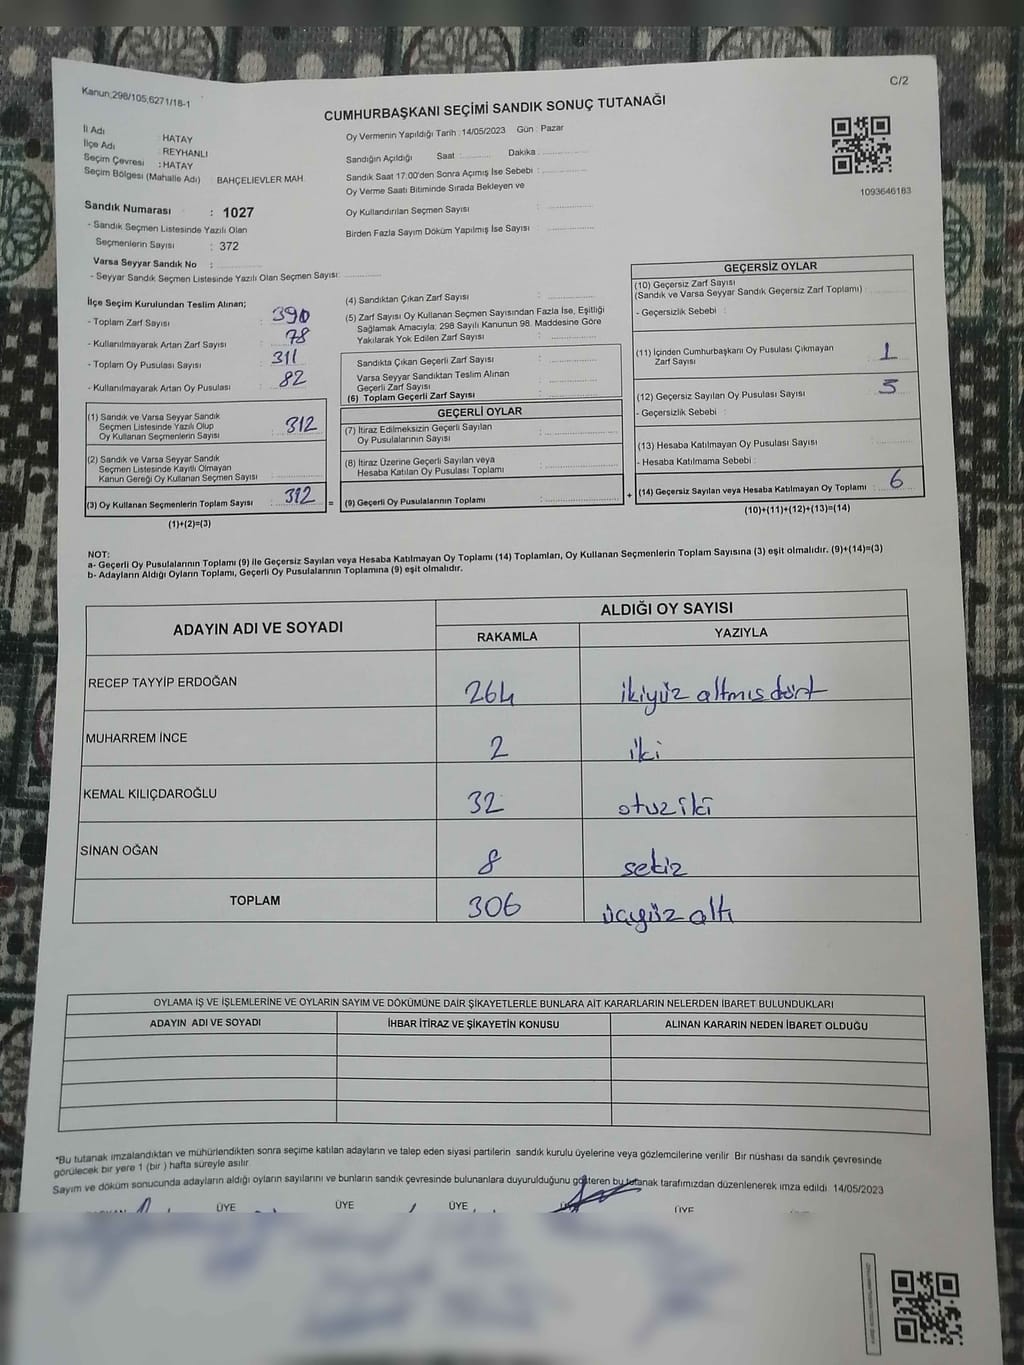 Kanun;298/105,6271/18-1
C/2
CUMHURBAŞKANI SEÇİMİ SANDIK SONUÇ TUTANAĞI
İl Adı : HATAY
İlçe Adı : REYHANLI
Seçim Çevresi : HATAY
Seçim Bölgesi (Mahalle Adı) : BAHÇELİEVLER MAH.
Sandık Numarası : 1027
- Sandık Seçmen Listesinde Yazılı Olan
Seçmenlerin Sayısı : 372
Varsa Seyyar Sandık No :
- Seyyar Sandık Seçmen Listesinde Yazılı Olan Seçmen Sayısı:
Oy Vermenin Yapıldığı Tarih : 14/05/2023 Gün : Pazar
Sandığın Açıldığı Saat : Dakika :
Sandık Saat 17:00'den Sonra Açımış İse Sebebi :
Oy Verme Saati Bitiminde Sırada Bekleyen ve
Oy Kullandırılan Seçmen Sayısı :
Birden Fazla Sayım Döküm Yapılmış İse Sayısı :
1093646163
İlçe Seçim Kurulundan Teslim Alınan;
- Toplam Zarf Sayısı : 390
- Kullanılmayarak Artan Zarf Sayısı : 78
- Toplam Oy Pusulası Sayısı : 311
- Kullanılmayarak Artan Oy Pusulası : 82
(1) Sandık ve Varsa Seyyar Sandık
Seçmen Listesinde Yazılı Olup
Oy Kullanan Seçmenlerin Sayısı : 312
(2) Sandık ve Varsa Seyyar Sandık
Seçmen Listesinde Kayıtlı Olmayan
Kanun Gereği Oy Kullanan Seçmen Sayısı :
(3) Oy Kullanan Seçmenlerin Toplam Sayısı : 312 =
(1)+(2)=(3)
(4) Sandıktan Çıkan Zarf Sayısı :
(5) Zarf Sayısı Oy Kullanan Seçmen Sayısından Fazla İse, Eşitliği
Sağlamak Amacıyla, 298 Sayılı Kanunun 98. Maddesine Göre
Yakılarak Yok Edilen Zarf Sayısı :
Sandıkta Çıkan Geçerli Zarf Sayısı :
Varsa Seyyar Sandıktan Teslim Alınan
Geçerli Zarf Sayısı :
(6) Toplam Geçerli Zarf Sayısı :
GEÇERLİ OYLAR
(7) İtiraz Edilmeksizin Geçerli Sayılan
Oy Pusulalarının Sayısı :
(8) İtiraz Üzerine Geçerli Sayılan veya
Hesaba Katılan Oy Pusulası Toplamı :
(9) Geçerli Oy Pusulalarının Toplamı : +
GEÇERSİZ OYLAR
(10) Geçersiz Zarf Sayısı
(Sandık ve Varsa Seyyar Sandık Geçersiz Zarf Toplamı) :
- Geçersizlik Sebebi :
(11) İçinden Cumhurbaşkanı Oy Pusulası Çıkmayan
Zarf Sayısı : 1
(12) Geçersiz Sayılan Oy Pusulası Sayısı : 5
- Geçersizlik Sebebi :
(13) Hesaba Katılmayan Oy Pusulası Sayısı :
- Hesaba Katılmama Sebebi :
(14) Geçersiz Sayılan veya Hesaba Katılmayan Oy Toplamı : 6
(10)+(11)+(12)+(13)=(14)
NOT:
a- Geçerli Oy Pusulalarının Toplamı (9) ile Geçersiz Sayılan veya Hesaba Katılmayan Oy Toplamı (14) Toplamları, Oy Kullanan Seçmenlerin Toplam Sayısına (3) eşit olmalıdır. (9)+(14)=(3)
b- Adayların Aldığı Oyların Toplamı, Geçerli Oy Pusulalarının Toplamına (9) eşit olmalıdır.
ADAYIN ADI VE SOYADI ALDIĞI OY SAYISI
RAKAMLA YAZIYLA
RECEP TAYYİP ERDOĞAN 264 ikiyüz altmış dört
MUHARREM İNCE 2 iki
KEMAL KILIÇDAROĞLU 32 otuz iki
SİNAN OĞAN 8 sekiz
TOPLAM 306 üçyüz altı
OYLAMA İŞ VE İŞLEMLERİNE VE OYLARIN SAYIM VE DÖKÜMÜNE DAİR ŞİKAYETLERLE BUNLARA AİT KARARLARIN NELERDEN İBARET BULUNDUKLARI
ADAYIN ADI VE SOYADI İHBAR İTİRAZ VE ŞİKAYETİN KONUSU ALINAN KARARIN NEDEN İBARET OLDUĞU
*Bu tutanak imzalandıktan ve mühürlendikten sonra seçime katılan adayların ve talep eden siyasi partilerin sandık kurulu üyelerine veya gözlemcilerine verilir Bir nüshası da sandık çevresinde
görülecek bir yere 1 (bir ) hafta süreyle asılır.
Sayım ve döküm sonucunda adayların aldığı oyların sayılarını ve bunların sandık çevresinde bulunanlara duyurulduğunu gösteren bu tutanak tarafımızdan düzenlenerek imza edildi 14/05/2023
ÜYE ÜYE ÜYE ÜYE ÜYE